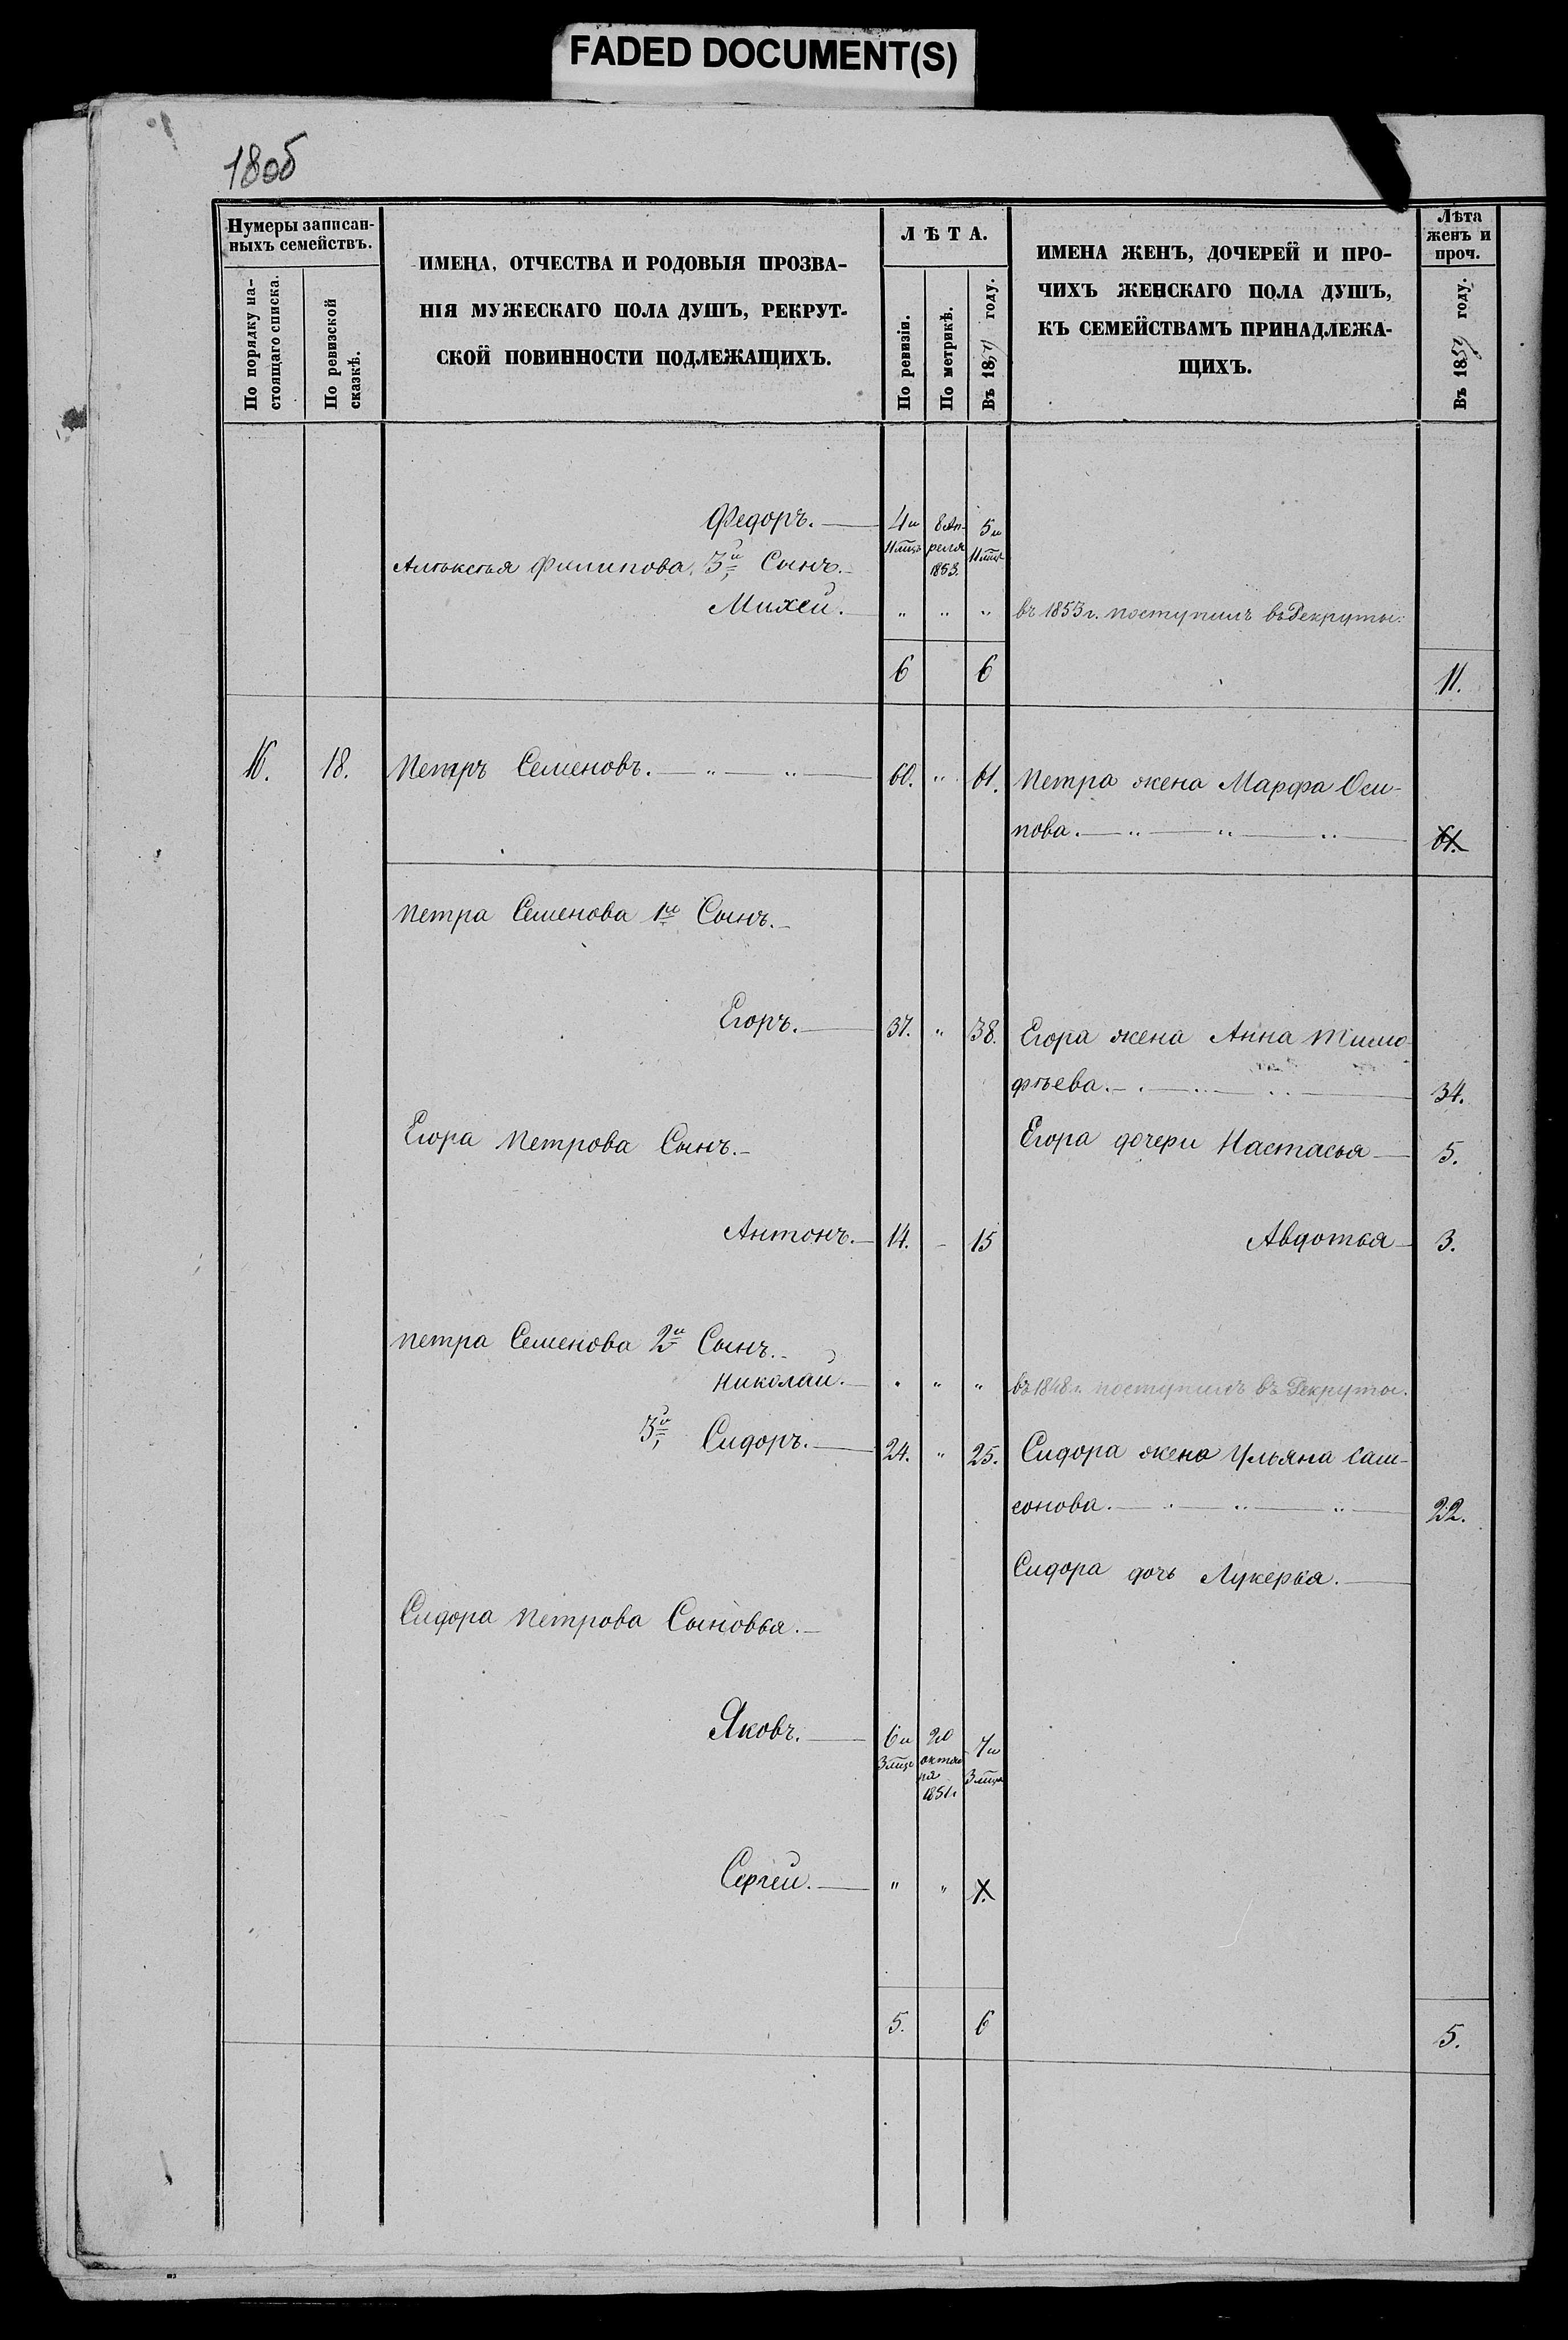 FADED DOCUMENT(S)
180об
Нумеры записан-
ныхъ семействъ.
По порядку на-
стоящаго списка.
По ревизской
сказкѣ.
ИМЕНА, ОТЧЕСТВА И РОДОВЫЯ ПРОЗВА-
НІЯ МУЖЕСКАГО ПОЛА ДУШЪ, РЕКРУТ-
СКОЙ ПОВИННОСТИ ПОДЛЕЖАЩИХЪ.
ЛѢТА.
По ревизіи.
По метрикѣ.
Въ 1859 году.
ИМЕНА ЖЕНЪ, ДОЧЕРЕЙ И ПРО-
ЧИХЪ ЖЕНСКАГО ПОЛА ДУШЪ,
КЪ СЕМЕЙСТВАМЪ ПРИНАДЛЕЖА-
ЩИХЪ.
Лѣта
женъ и
проч.
Въ 1859 году.
Федоръ. 4 и 8 Ап- 5 и
11 мцъ реля 11 мцъ
1853.
Алексѣя Филипова 3й Сынъ.
Михей. " " " въ 1853 г. поступилъ въ Рекруты.
6 6 11.
16. 18. Петръ Семеновъ. 60. " 61. Петра жена Марфа Оси-
пова. 61.
Петра Семенова 1й Сынъ.
Егоръ. 37. " 38. Егора жена Анна Тимо-
фѣева. 34.
Егора Петрова Сынъ. Егора дочери Настасья 5.
Антонъ. 14. - 15 Авдотья 3.
Петра Семенова 2й Сынъ.
Николай. " " " въ 1848 г. поступилъ въ Рекруты.
3й Сидоръ. 24. " 25. Сидора жена Ульяна Сам-
сонова. 22.
Сидора дочь Лукерья.
Сидора Петрова Сыновья.
Яковъ. 6 и 20 7 и
3 мцъ октяб 3 мцъ
ря
1851.
Сергей. " " 1.
5. 6 5.